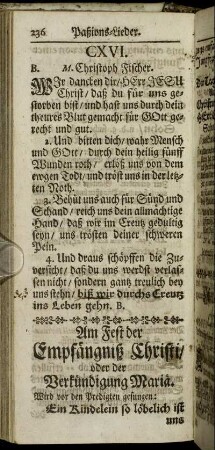 236 Paßions-Lieder.
CXVI.
B. M. Christoph Fischer.
WJr dancken dir/ HErr JESU
Christ/ daß du für uns ge-
storben bist/ und hast uns durch dein
theures Blut gemacht für GOtt ge-
recht und gut.
2. Und bitten dich/ wahr Mensch
und GOtt/ durch dein heilig fünff
Wunden roth/ erlöß uns von dem
ewgen Todt/ und tröst uns in der letz-
ten Noth.
3. Behüt uns auch für Sünd und
Schand/ reich uns dein allmächtige
Hand/ daß wir im Creutz gedultig
seyn/ uns trösten deiner schweren
Pein.
4. Und draus schöpffen die Zu-
versicht/ daß du uns werdst verlas-
sen nicht/ sondern gantz treulich bey
uns stehn/ biß wir durchs Creutz
ins Leben gehn. B.
Am Fest der
Empfängniß Christi/
oder der
Verkündigung Mariä.
Wird vor den Predigten gesungen:
Ein Kindelein so löbelich ist
uns